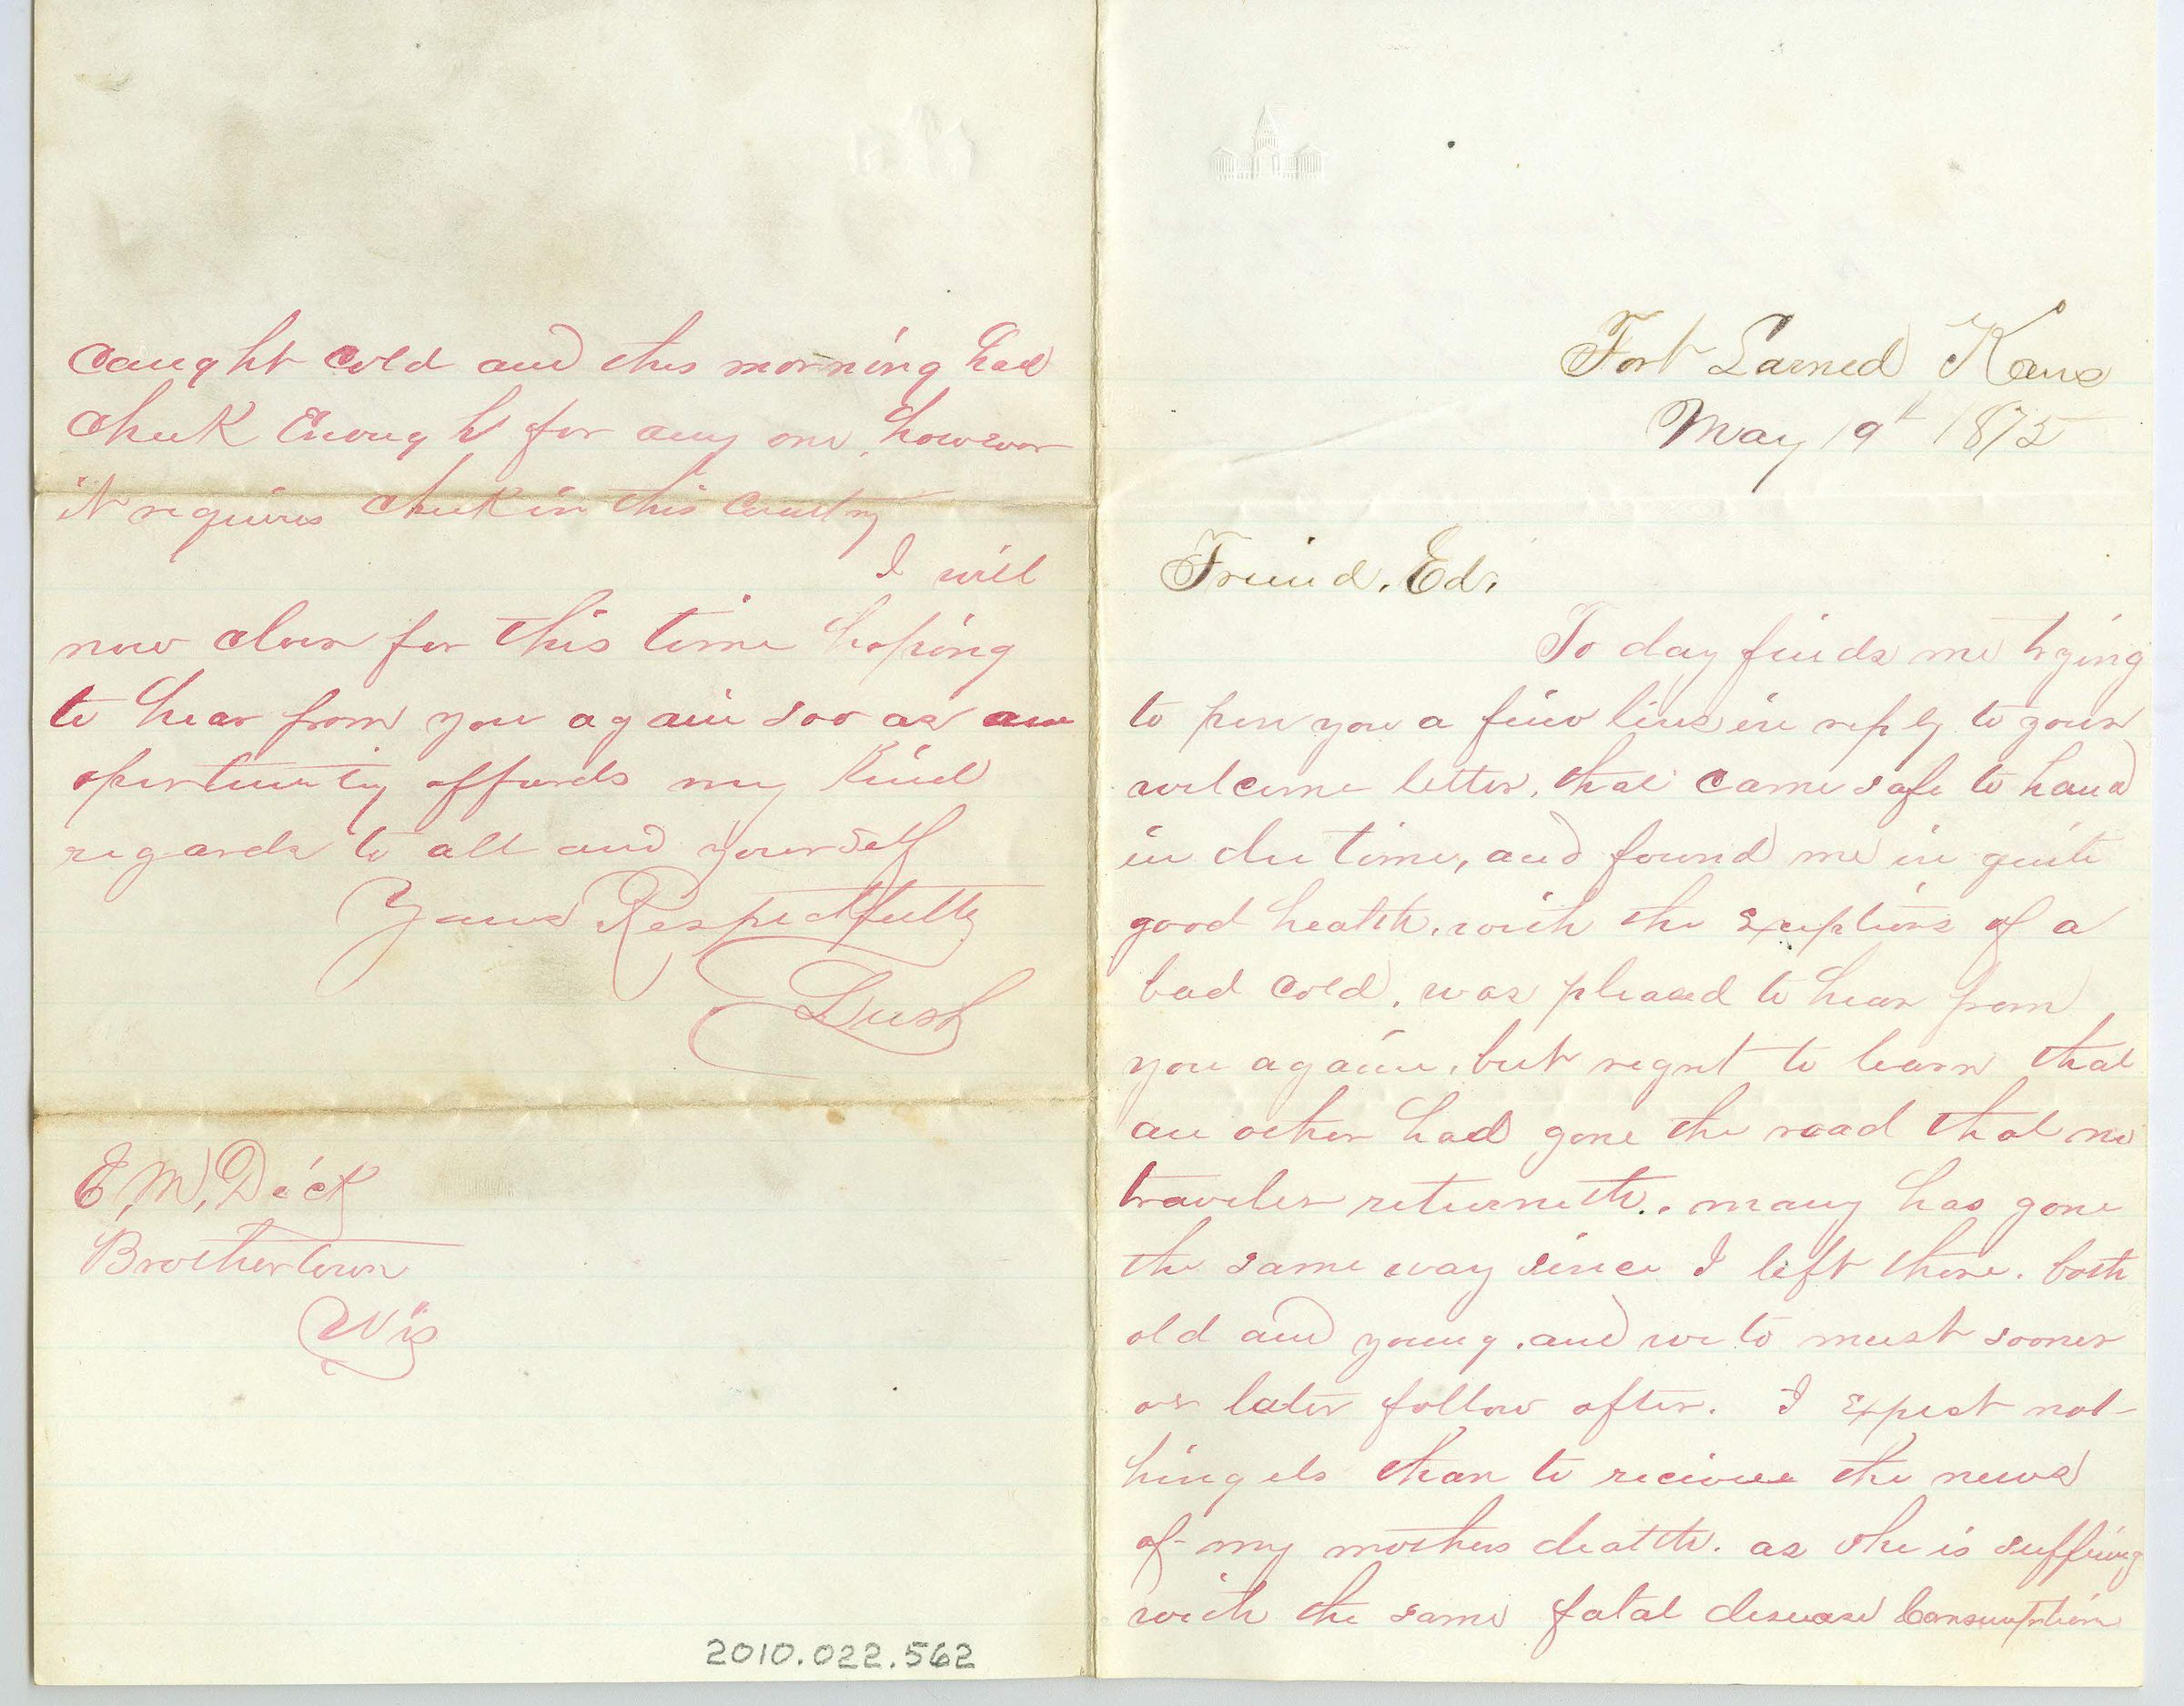 Fort Larned Kans
May 19th 1875
Friend. Ed.
To day finds me trying
to pen you a fiew lines in reply to your
welcome letter, that came safe to hand
in due time, and found me in quite
good health, with the exeptions of a
bad cold. was pleased to hear from
you again, but regret to learn that
an other had gone the road that no
traveler returneth.. many has gone
the same way since I left there. both
old and young. and we to must sooner
or later follow after. I expect not-
hing els than to recieve the news
of my mothers death. as she is suffering
with the same fatal disease Consumption
caught cold and this morning had
cheek Enough for any one, however
it requires cheek in this Country
I will
now close for this time hoping
to hear from you again soo as an
opertunity affords my kind
regards to all and yourself
Yours Respectfully
Lush
E. M. Dick
Brothertown
Wis
2010.022.562